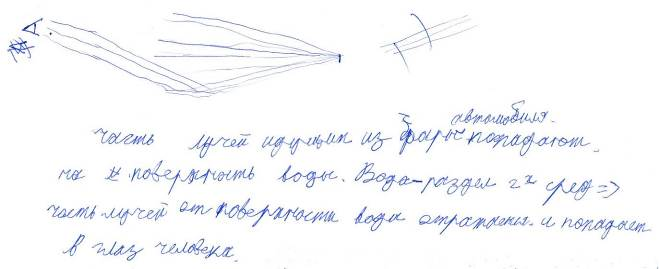 A
автомобиля.
часть лучей идущих из фары попадают
на поверхность воды. Вода-раздел 2х сред =>
часть лучей от поверхности воды отражены и попадает
в глаз человека.